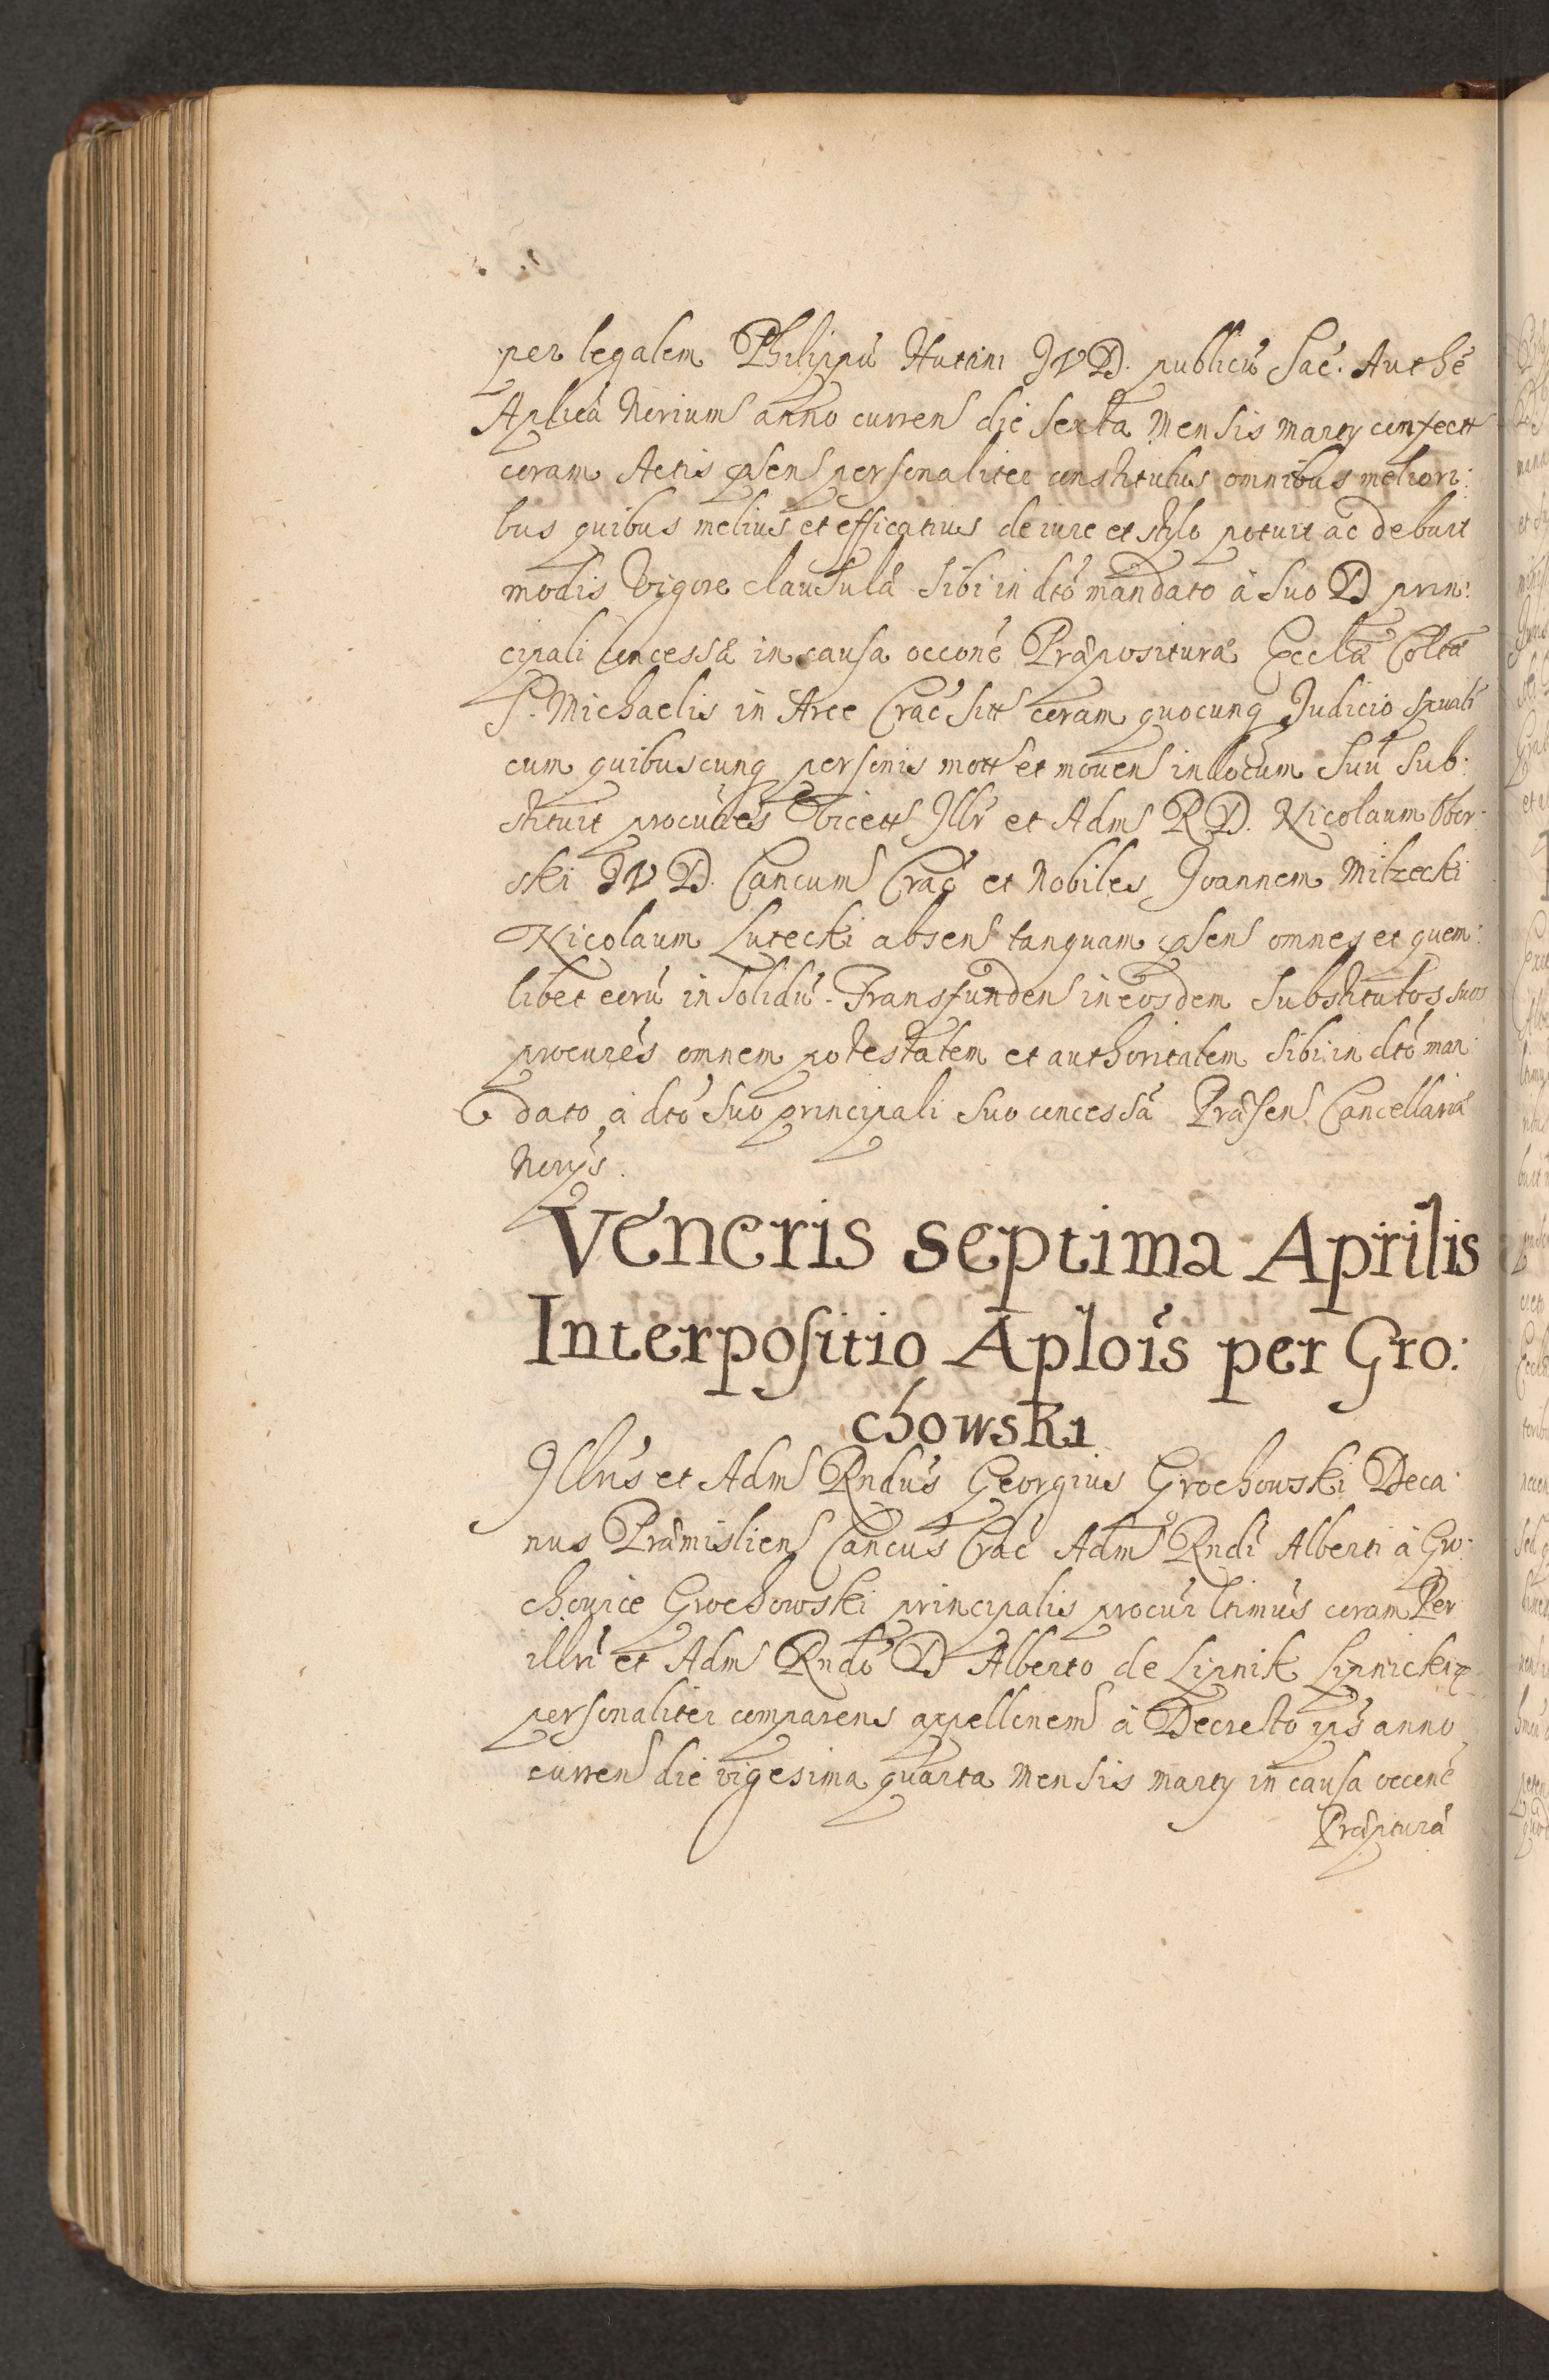 per legalem Philippū Hutini JVD. publicū Sac̄. Authē
Aplicā Norium anno curren die sexta Mensis Marty confectt
coram Actis p̄sen personaliter constitutus omnibus meliori:
bus quibus melius et efficatius de iure et stylo potuit ac debuit
modis Vigore clausulæ sibi in dtō mandato à suo D prin:
cipali concessæ in causa occonē Præposituræ Eccliæ Coltæ
S. Michaelis in Arce Crac̄ sitt coram quocunq Judicio spuali
cum quibuscunq personis mott et mouen in locum suū sub:
stituit procur̄es vicett Jllr̄ et Adm R D. Nicolaum Obor:
ski JVD. Cancum Crac̄ et Nobiles Joannem Milzecki
Nicolaum Lutecki absen tanquam p̄sen omnes et quem:
libet eorū in solidū. Transfunden in eosdem substitutos suos
procur̄es omnem potestatem et authoritatem sibi in dtō man
dato à dtō suo principali suo concessā Præsen Cancellariæ
Norys.
Veneris septima Aprilis
Interpositio Aplōis per Gro:
chowski
Jllrīs et Adm Rndūs Georgius Grochowski Deca:
nus Præmislien Cancūs Crac̄ Adm Rndi Alberti à Gro:
chowice Grochowski principalis procur ltimūs coram Per
illri et Adm Rndō D Alberto de Lipnik Lipnicki
personaliter comparens appellonem à Decreto ips̄ anno
curren die vigesima quarta Mensis Marty in causa occonē
Præpituræ